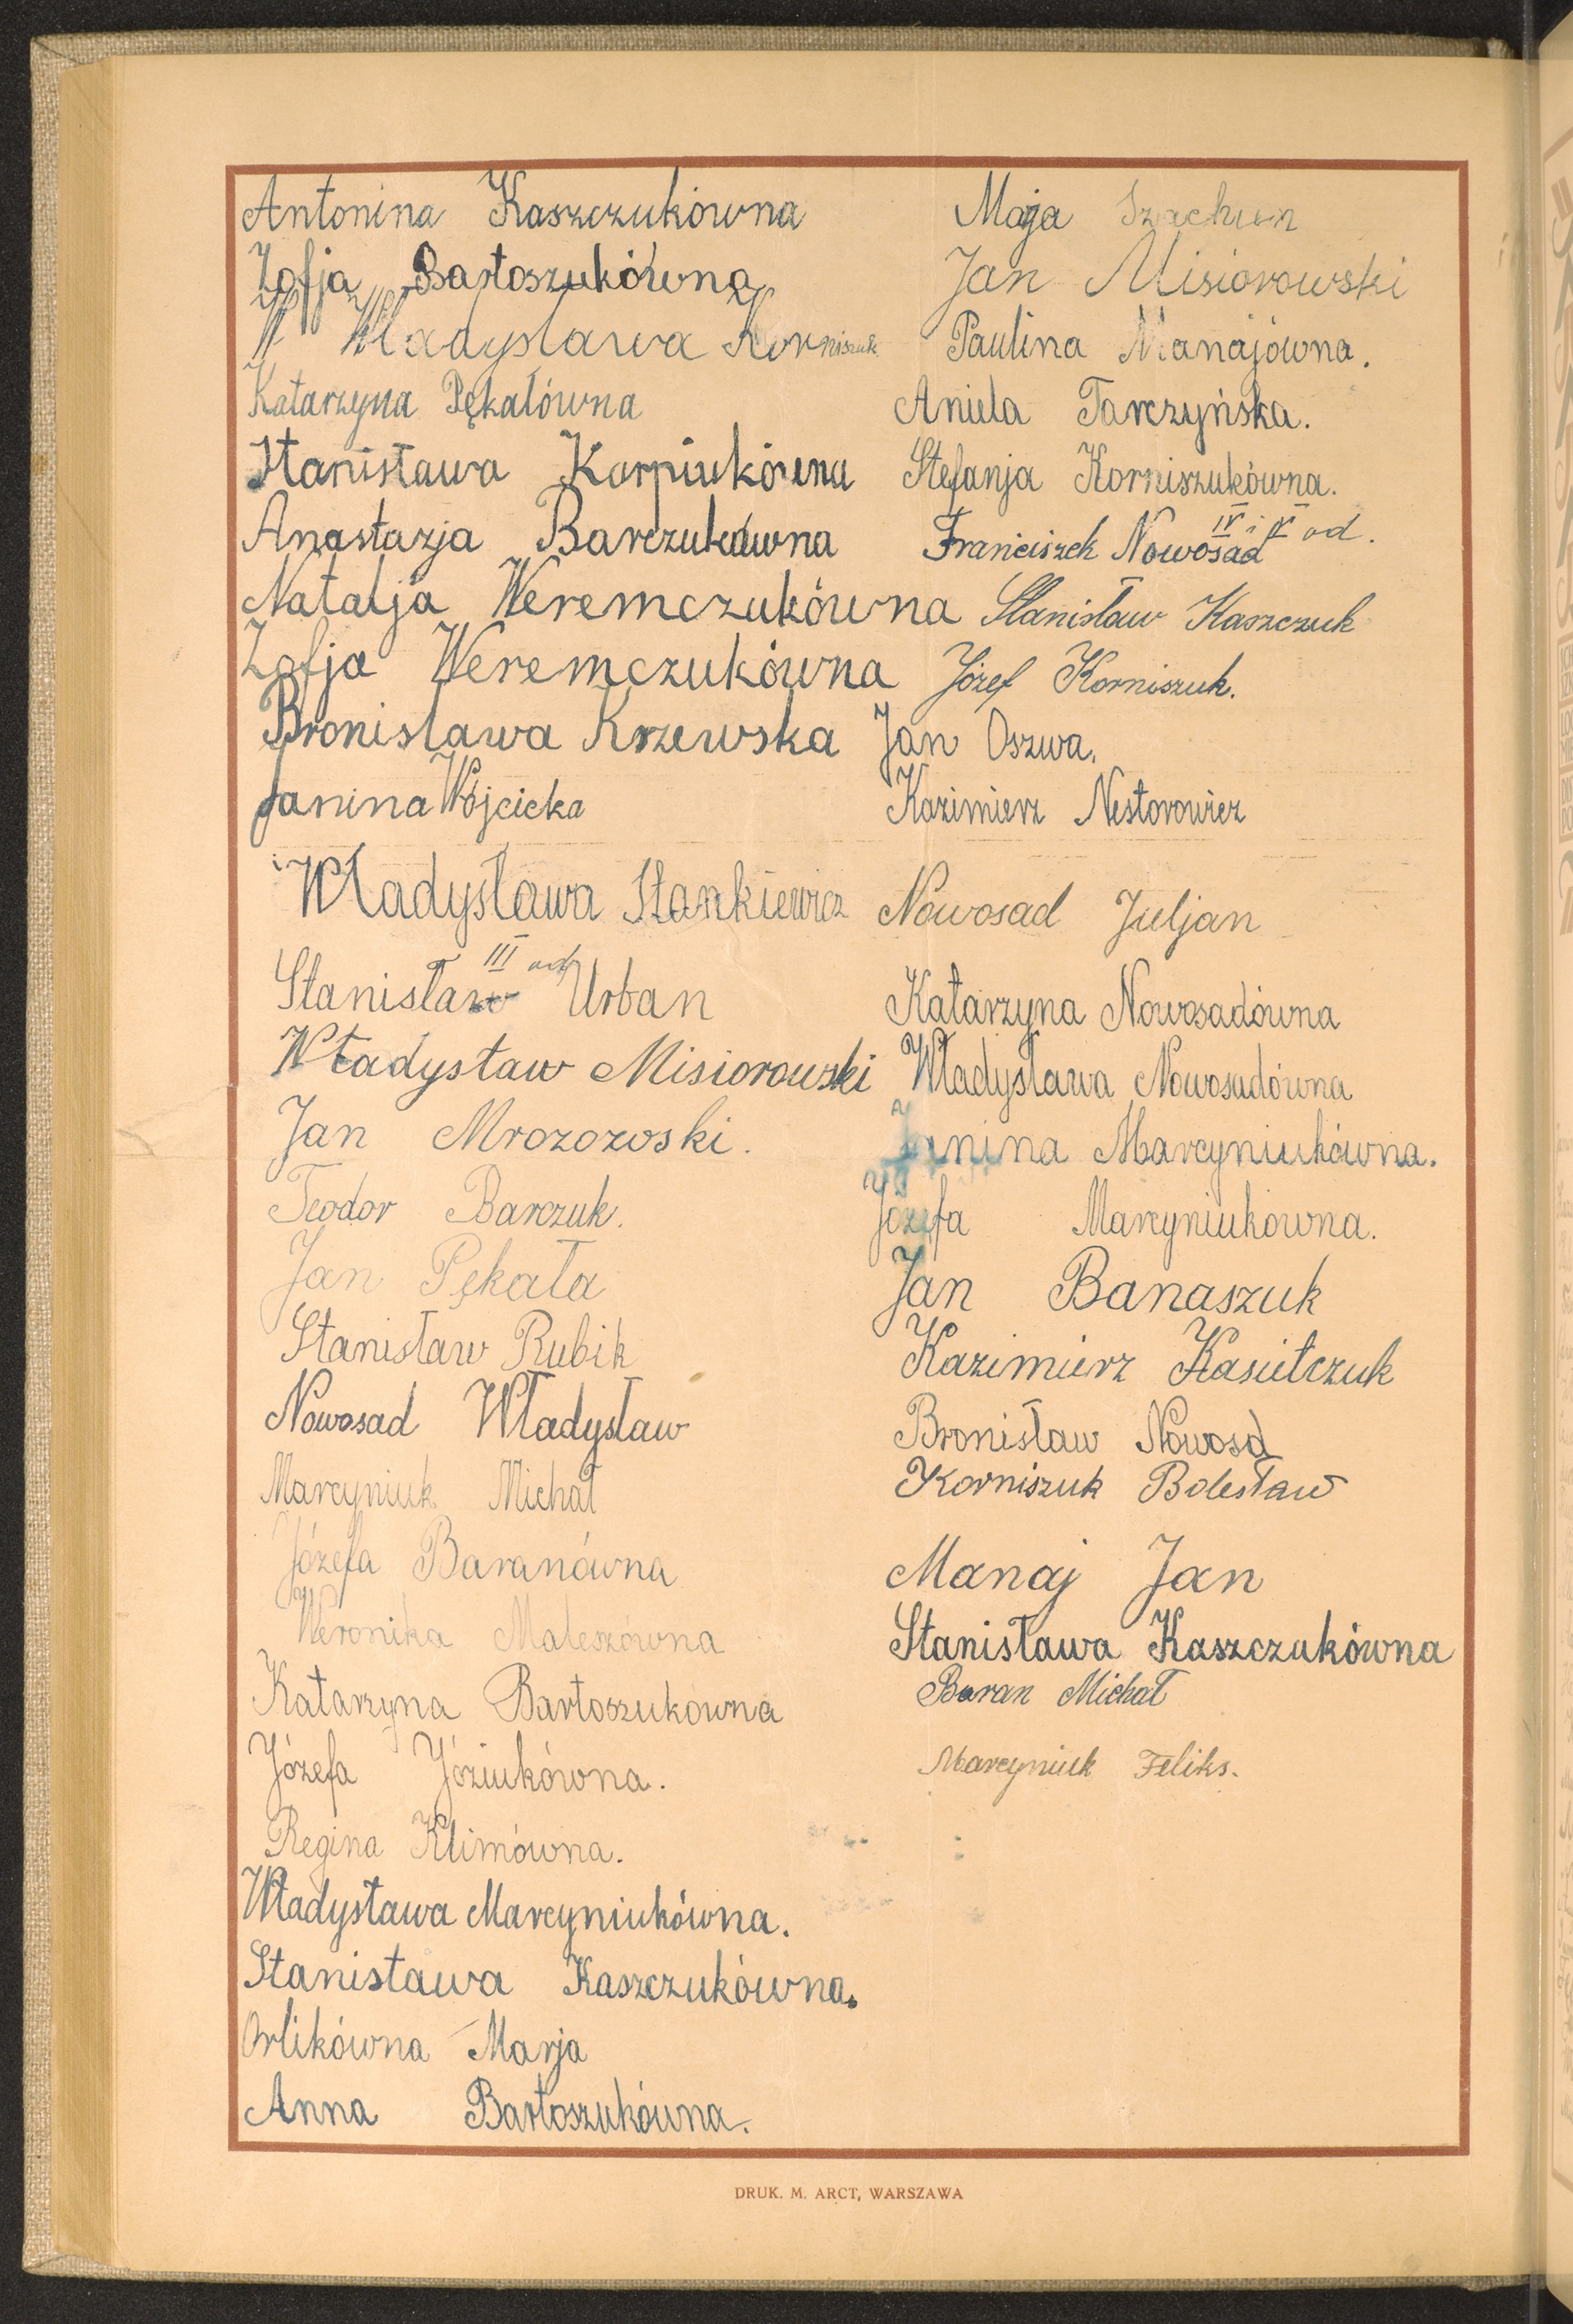 Antonina Kaszczukówna
Zofja Bartoszukówna
W Władysława Korniszuk
Katarzyna Pękałówna
Stanisława Karpiukówna
Anastazja Barczukówna
Natalja Weremczukówna
Zofja Weremczukówna
Bronisława Krzewska
Janina Wójcicka
Władysława Stankiewicz
III od
Stanisław Urban
Władysław Misiorowski
Jan Mrozozoski.
Teodor Barczuk.
Jan Pękała
Stanisław Rubik
Nowosad Władysław
Marcyniuk Michał
Józefa Baranówna
Weronika Maleszówna
Katarzyna Bartoszukówna
Józefa Józiukówna.
Regina Klimówna.
Władysława Marcyniukówna.
Stanisława Kaszczukówna.
Orlikówna Marja
Anna Bartoszukówna.
Maja
Jan Misiorowski
Paulina Manajówna.
Aniela Tarczyńska.
Stefanja Korniszukówna.
IV i V od.
Franciszek Nowosad
Stanisław Kaszczuk
Józef Korniszuk.
Jan Oszwa.
Kazimierz Nestorowicz
Nowosad Juljan
Katarzyna Nowosadówna
Władysława Nowosadówna
Janina Marcyniukówna.
Józefa Marcyniukówna.
Jan Banaszuk
Kazimierz Kasiełczuk
Bronisław Nowosd
Korniszuk Bolesław
Manaj Jan
Stanisława Kaszczukówna
Baran Michał
Marcyniuk Feliks.
DRUK. M. ARCT, WARSZAWA